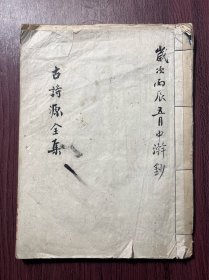 歲次丙辰五月中澣鈔
古詩源全集